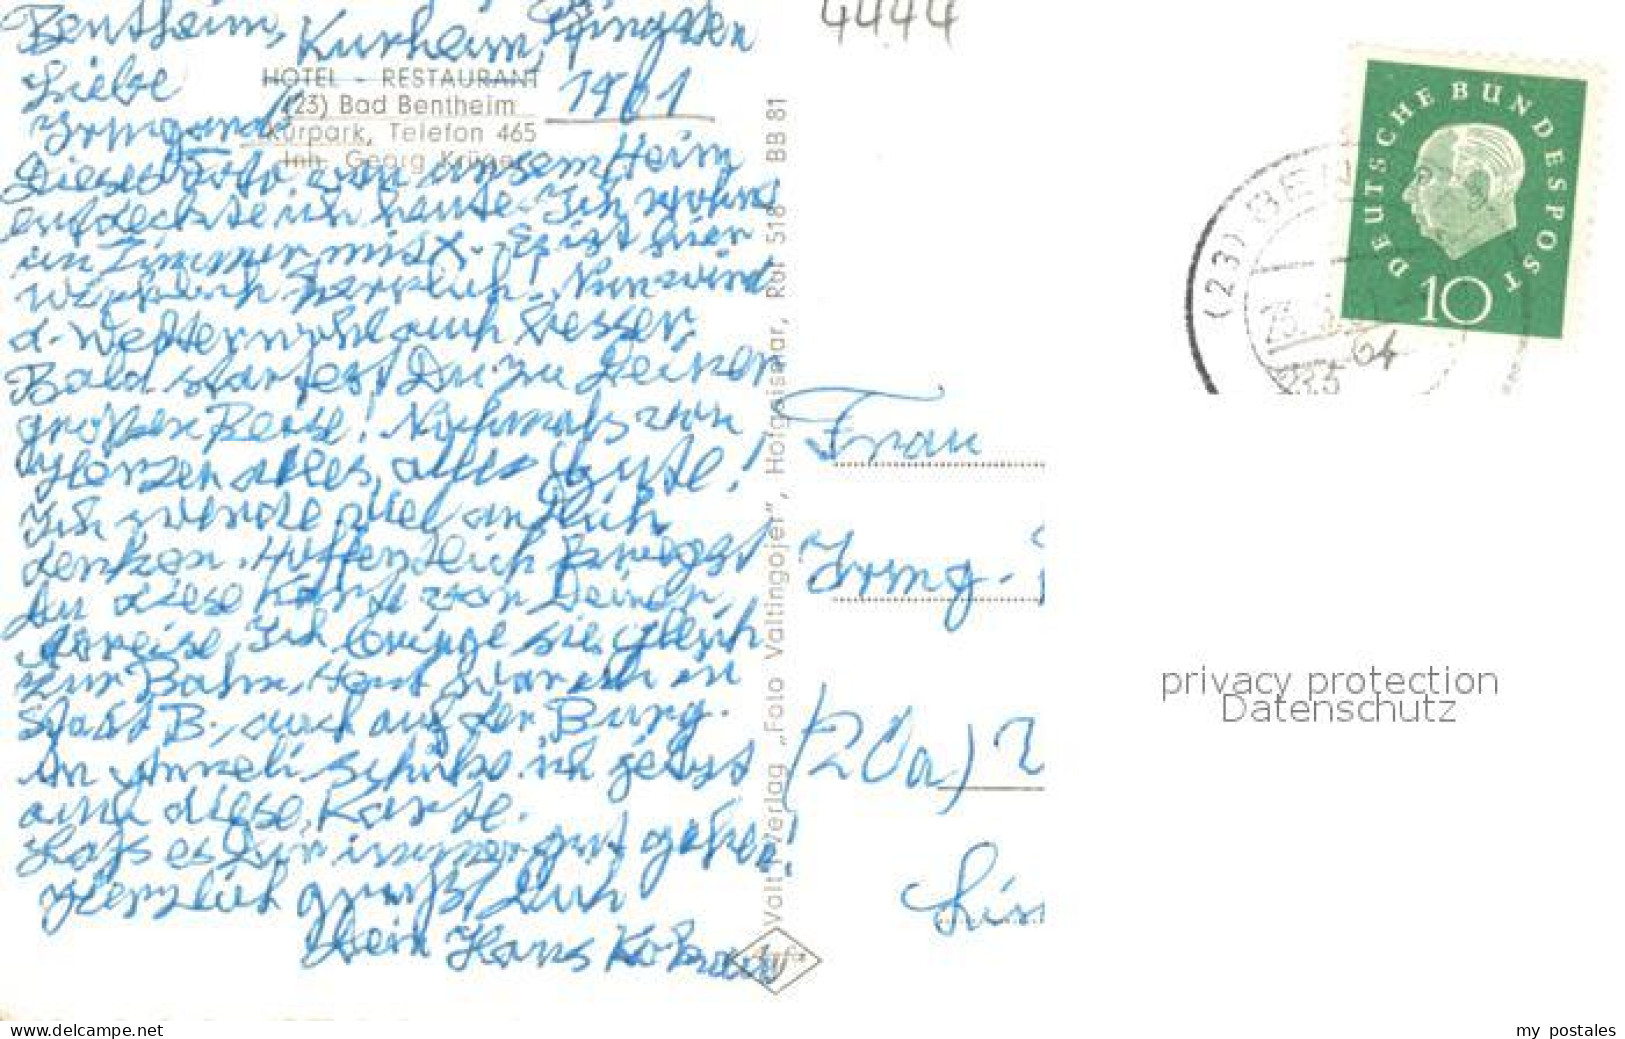 4444
Bentheim, Kurheim, Pfingsten
1961
HOTEL - RESTAURANT
(23) Bad Bentheim
Kurpark, Telefon 465
Inh. Georg Krüger
Liebe
Irmgard!
Dieses Foto von unsem Heim
entdeckte ich heute. Ich wohne
im Zimmer mit X. Es ist hier
wirklich herrlich. Nun wird
d. Wetter wohl auch besser.
Bald startest Du zu Deiner
großen Reise! Nochmals von
Herzen alles, alles Gute!
Ich werde viel an Dich
denken. Hoffentlich kriegst
du diese Karte vor Deiner
Abreise. Ich bringe sie gleich
zur Bahn. Heut war ich in
Stadt B., auch auf der Burg.
An schicke ich jetzt
auch diese Karte.
Lass es Dir immer gut gehen!
Herzlich grüßt Dich
Dein Hans
Valtin-Verlag „Foto Valtingojer", Hofgeismar, Ruf 518 BB 81
Agfa
Frau
Irmg.
(20a)
DEUTSCHE BUNDESPOST
10
(23) BEN
privacy protection
Datenschutz
www.delcampe.net
my postales